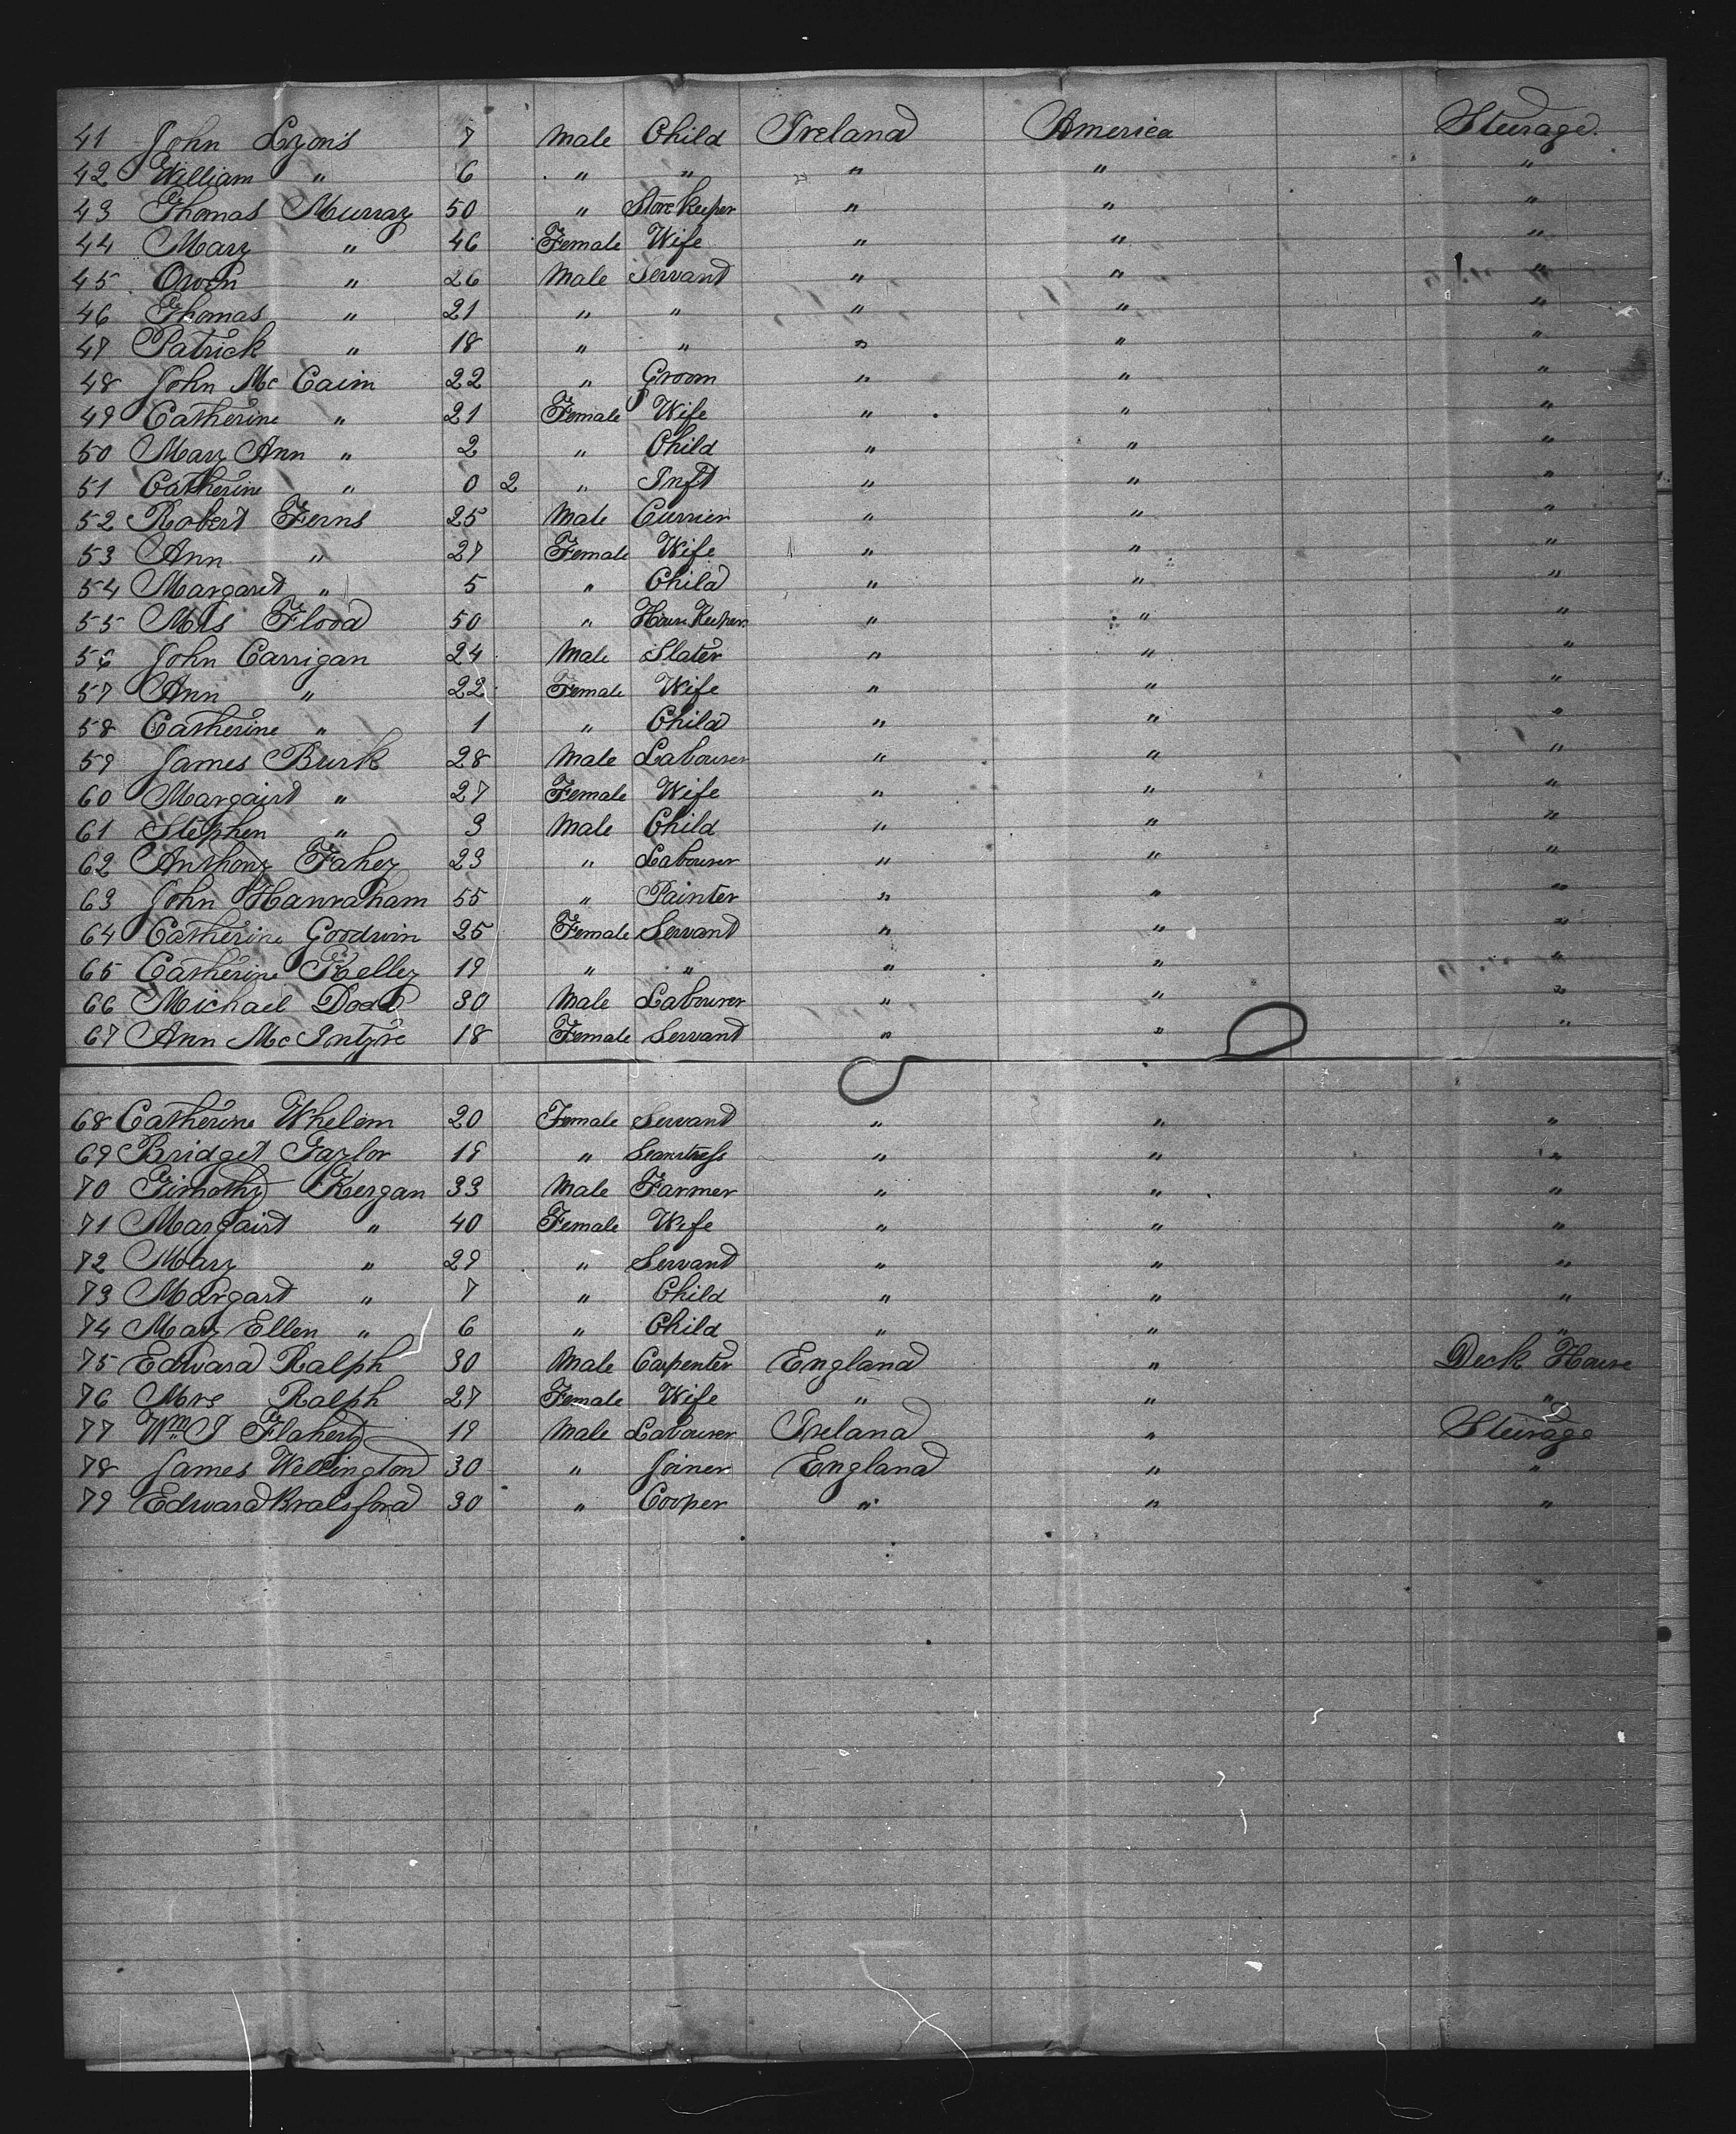 41 John Lyons 7 Male Child Ireland America Steurage.
42 William " 6 " " " " "
43 Thomas Murray 50 " Store Keeper " " "
44 Mary " 46 Female Wife " " "
45 Owen " 26 Male Servant " " "
46 Thomas " 21 " " " " "
47 Patrick " 18 " " " " "
48 John Mc Caim 22 " Groom " " "
49 Catherine " 21 Female Wife " " "
50 Mary Ann " 2 " Child " " "
51 Catherine " 0 2 " Inft " " "
52 Robert Ferns 25 Male Currier " " "
53 Ann " 27 Female Wife " " "
54 Margaret " 5 " Child " " "
55 Mrs Flood 50 " House Keeper " " "
56 John Carrigan 24 Male Slater " " "
57 Ann " 22 Female Wife " " "
58 Catherine " 1 " Child " " "
59 James Burk 28 Male Labourer " " "
60 Margairt " 27 Female Wife " " "
61 Stephen " 3 Male Child " " "
62 Anthony Fahey 23 " Labourer " " "
63 John Hanraham 55 " Painter " " "
64 Catherine Goodwin 25 Female Servant " " "
65 Catherine Kelley 19 " " " " "
66 Michael Dodd 30 Male Labourer " " "
67 Ann Mc Intyre 18 Female Servant " " "
68 Catherine Whelem 20 Female Servant " " "
69 Bridget Taylor 19 " Seamstress " " "
70 Timothy Kergan 33 Male Farmer " " "
71 Margairt " 40 Female Wife " " "
72 Mary " 29 " Servant " " "
73 Margart " 7 " Child " " "
74 Mary Ellen " 6 " Child " " "
75 Edward Ralph 30 Male Carpenter England " Deck House
76 Mrs Ralph 27 Female Wife " " "
77 Wm J Flaherty 19 Male Labourer Ireland " Steurage
78 James Wellington 30 " Joiner England " "
79 Edward Bralsford 30 " Cooper " " "